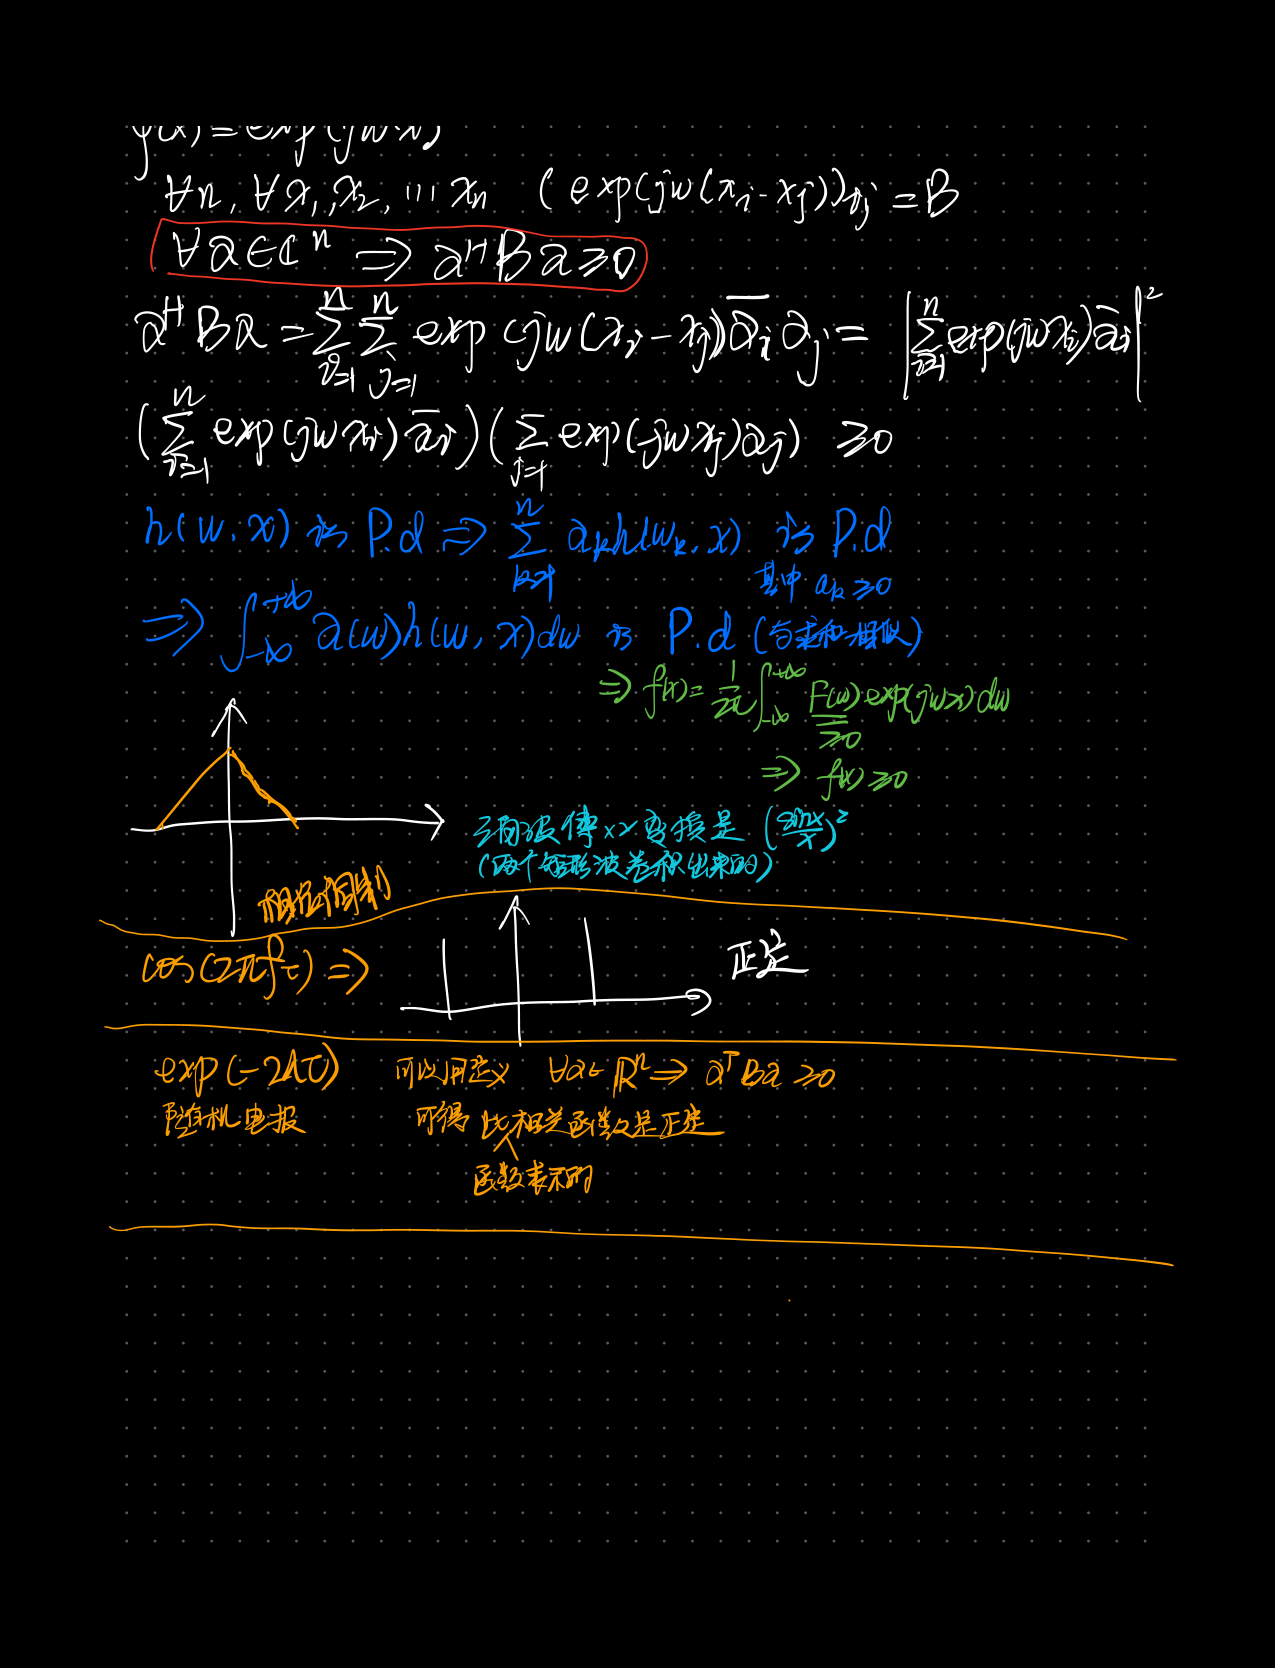 f(x) = exp(jwx)
∀n, ∀x₁, x₂, ... xₙ (exp(jw(xᵢ-xⱼ)))ᵢⱼ = B
∀a∈ℂⁿ ⇒ aᴴBa ≥ 0
aᴴBa = ∑ᵢ₌₁ⁿ ∑ⱼ₌₁ⁿ exp(jw(xᵢ-xⱼ)) a̅ᵢ aⱼ = |∑ᵢ₌₁ⁿ exp(jwxᵢ) a̅ᵢ|²
(∑ᵢ₌₁ⁿ exp(jwxᵢ) a̅ᵢ)(∑ⱼ₌₁ exp(-jwxⱼ)aⱼ) ≥ 0
h(w, x) is P.d ⇒ ∑ₖ₌₁ⁿ aₖh(wₖ, x) is P.d
其中 aₖ ≥ 0
⇒ ∫₋∞⁺∞ a(w)h(w, x)dw is P.d (与求和相似)
⇒ f(x) = 1/2π ∫₋∞⁺∞ F(w) exp(jwx) dw
≥0
⇒ f(x) ≥ 0
三角波傅××变换是 (sinx/x)²
(两个矩形波卷积出来的)
相位调制
cos(2πfτ) ⇒
正定
exp(-2λτ) 可以用定义 ∀a∈ℝⁿ ⇒ aᵀBa ≥ 0
随机电报 可得 此相关函数是正定
函数表示的